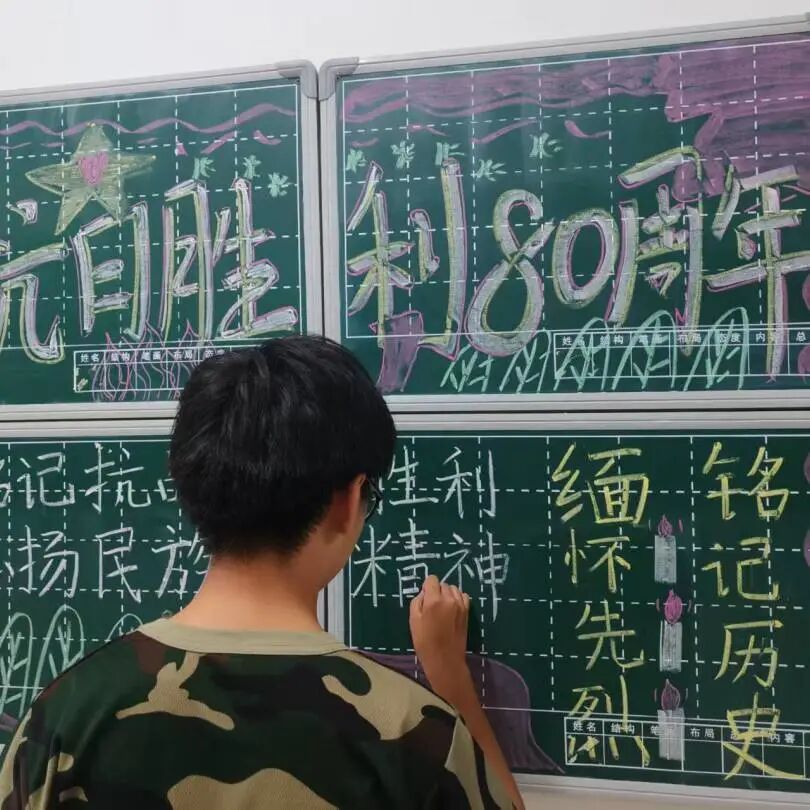 抗日胜利80周年
姓名 结构 笔画 布局
姓名 结构 笔画 布局 态度 内容 总
铭记抗日胜利
扬民族精神
缅怀先烈
铭记历史
姓名 结构 笔画 布局 态 内容